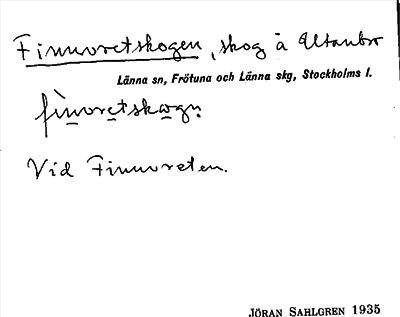 Finnvretskogen, skog å Utanbro
Länna sn, Frötuna och Länna skg, Stockholms l.
fìnvretskωgn
Vid Finnvreten.
JÖRAN SAHLGREN 1935